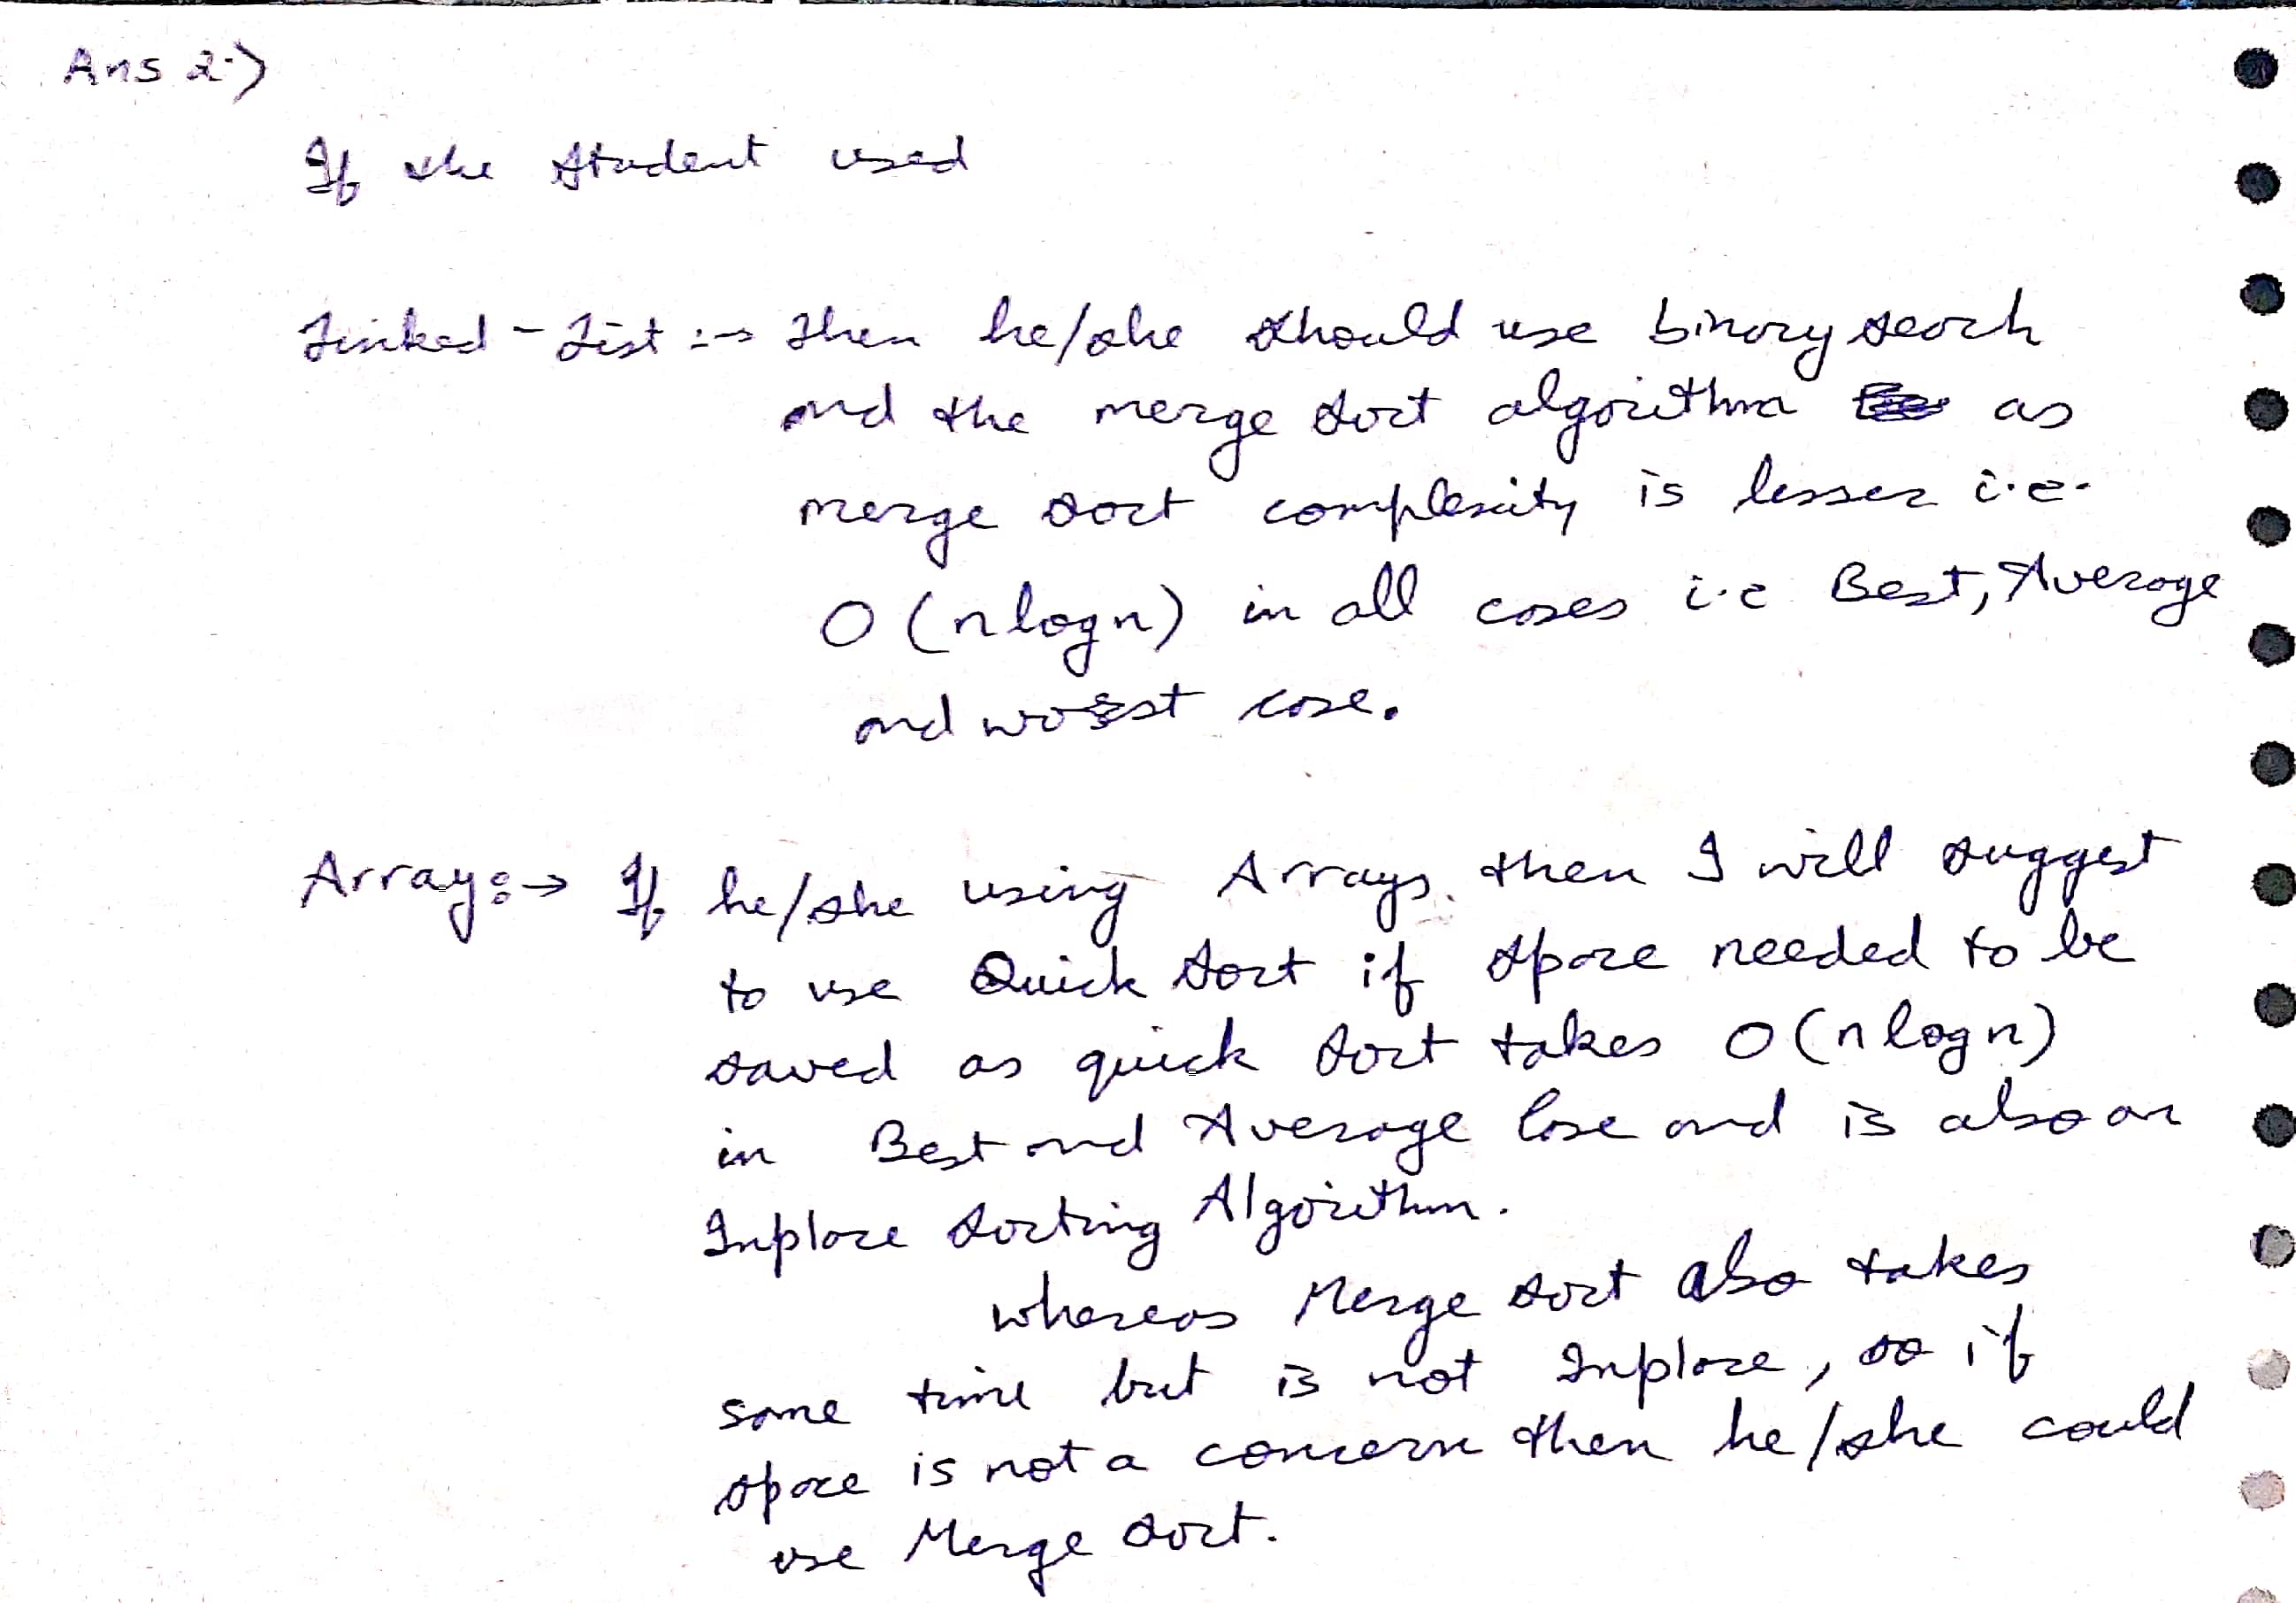 Ans 2.)
If the student used
Linked - List :→ then he/she should use binary search
and the merge sort algorithm as
merge sort complexity is lesser i.e.
O (n log n) in all cases i.e Best, Average
and worst case.
Array :→ If he/she using Arrays. then I will suggest
to use Quick sort if space needed to be
saved as quick sort takes O (n log n)
in Best and Average Case and is also an
Inplace sorting Algorithm.
whereas Merge sort also takes
same time but is not Inplace, so if
space is not a concern then he/she could
use Merge sort.